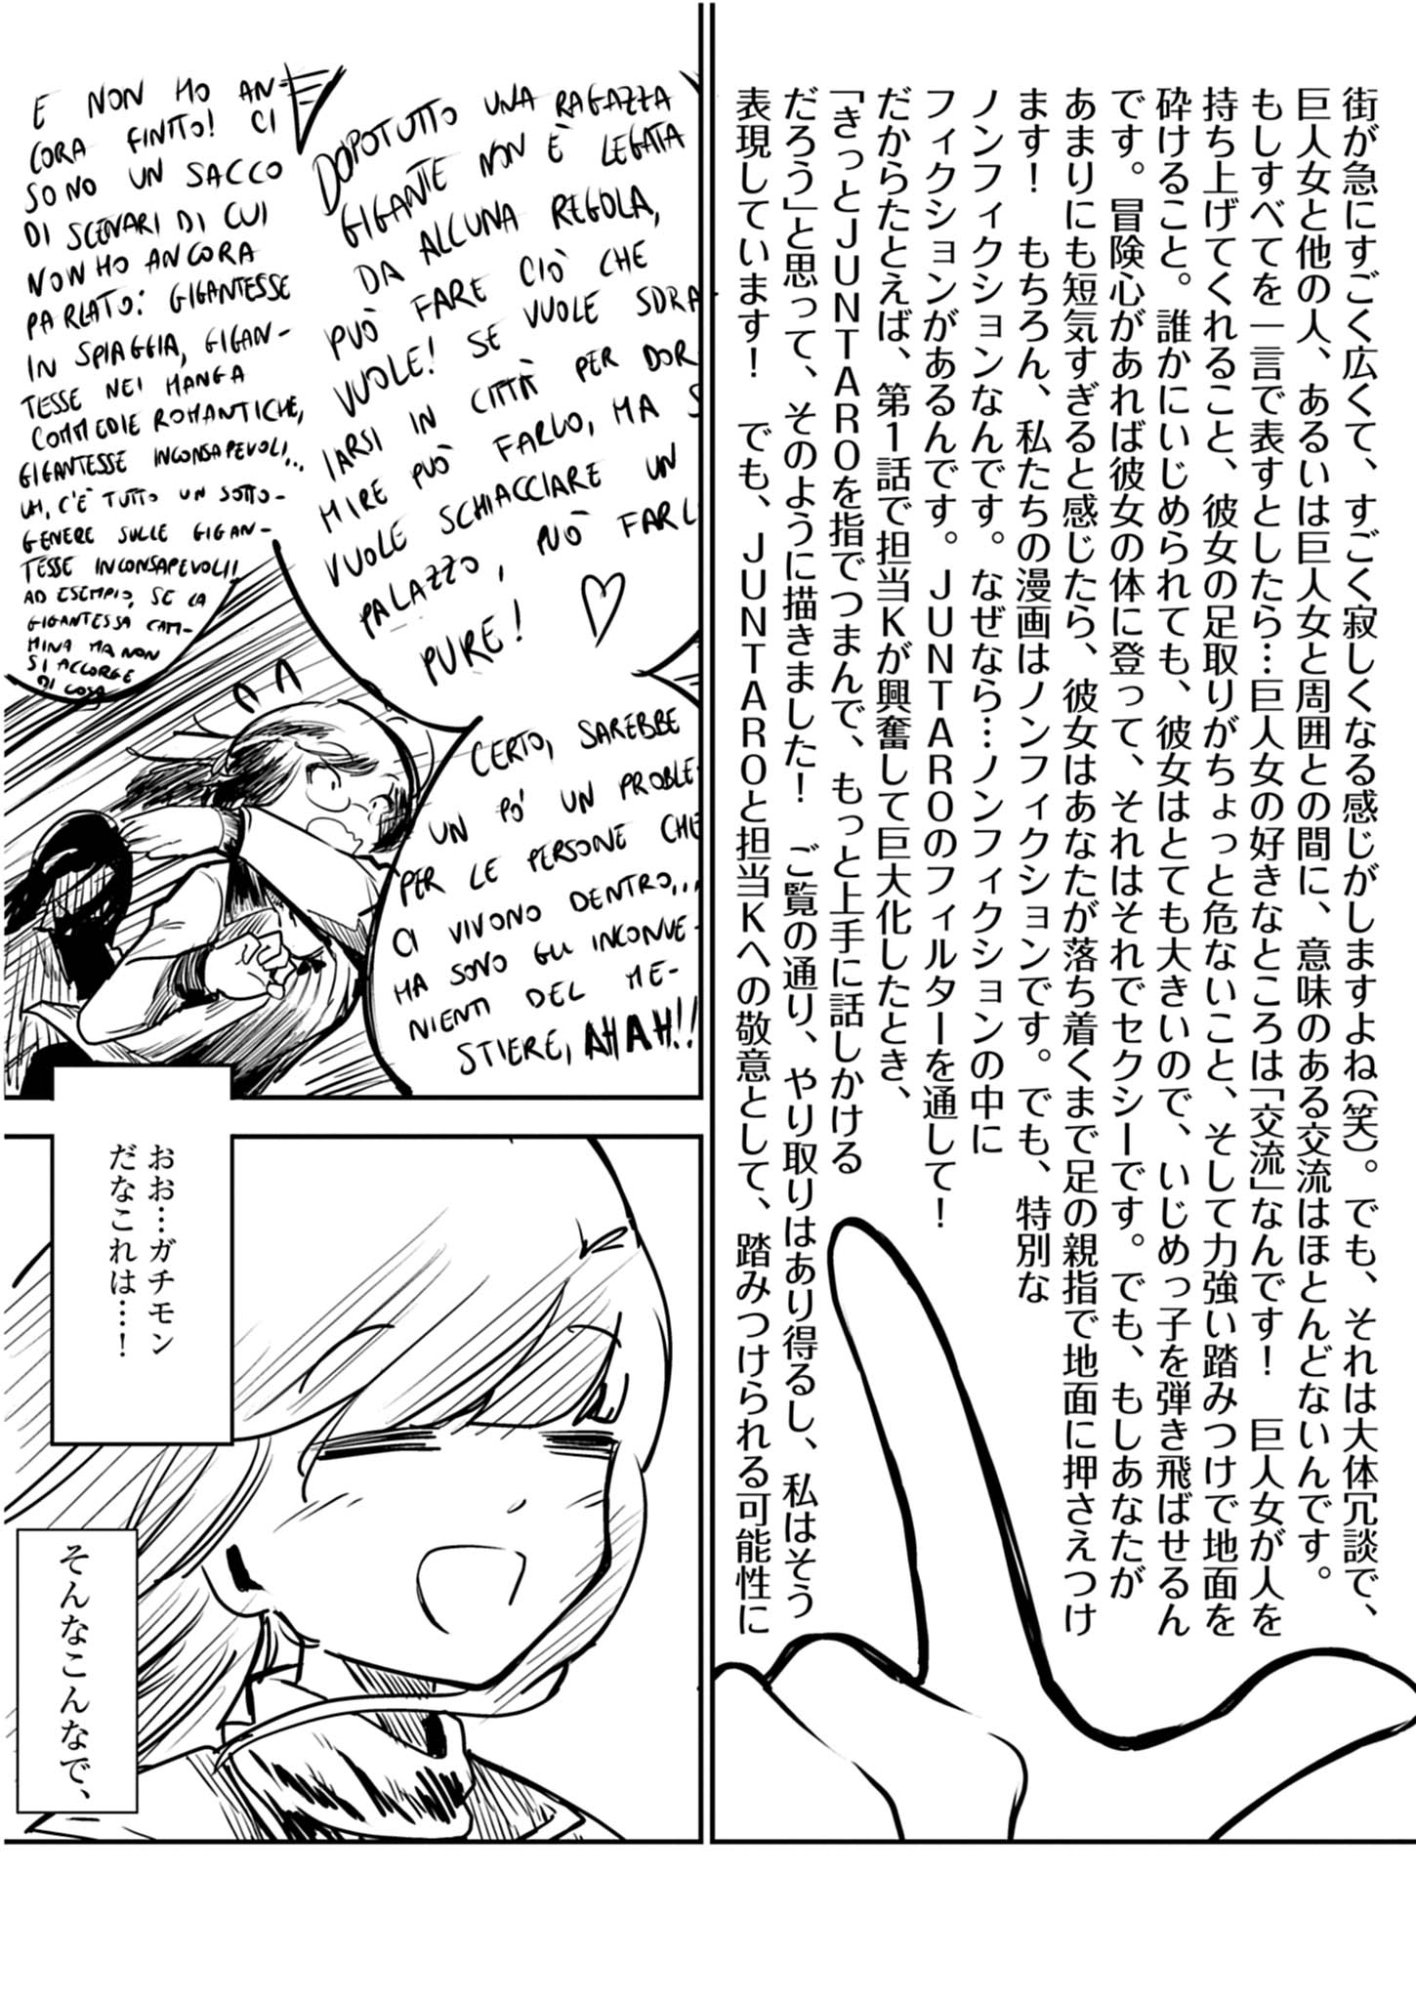 街が急にすごく広くて、すごく寂しくなる感じがしますよね(笑)。でも、それは大体冗談で、
巨人女と他の人、あるいは巨人女と周囲との間に、意味のある交流はほとんどないんです。
もしすべてを一言で表すとしたら…巨人女の好きなところは「交流」なんです! 巨人女が人を
持ち上げてくれること、彼女の足取りがちょっと危ないこと、そして力強い踏みつけで地面を
砕けること。誰かにいじめられても、彼女はとても大きいので、いじめっ子を弾き飛ばせるん
です。冒険心があれば彼女の体に登って、それはそれでセクシーです。でも、もしあなたが
あまりにも短気すぎると感じたら、彼女はあなたが落ち着くまで足の親指で地面に押さえつけ
ます! もちろん、私たちの漫画はノンフィクションです。でも、特別な
ノンフィクションなんです。なぜなら…ノンフィクションの中に
フィクションがあるんです。JUNTAROのフィルターを通して!
だからたとえば、第1話で担当Kが興奮して巨大化したとき、
「きっとJUNTAROを指でつまんで、もっと上手に話しかける
だろう」と思って、そのように描きました! ご覧の通り、やり取りはあり得るし、私はそう
表現しています! でも、JUNTAROと担当Kへの敬意として、踏みつけられる可能性に
DOPOTUTTO UNA RAGAZZA
GIGANTE NON È LEGATA
DA ALCUNA REGOLA,
PUÒ FARE CIÒ CHE
VUOLE! SE VUOLE SDRA
IARSI IN CITTÀ PER DOR
MIRE PUÒ FARLO, MA S
VUOLE SCHIACCIARE UN
PALAZZO, PUÒ FARL
PURE!
CERTO, SAREBBE
UN PO' UN PROBLE-
PER LE PERSONE CHE
CI VIVONO DENTRO...
MA SONO GLI INCONVE-
NIENTI DEL ME-
STIERE, AHAH!!
E NON HO AN-
CORA FINITO! CI
SONO UN SACCO
DI SCENARI DI CUI
NON HO ANCORA
PARLATO: GIGANTESSE
IN SPIAGGIA, GIGAN-
TESSE NEI MANGA
COMMEDIE ROMANTICHE,
GIGANTESSE INCONSAPEVOLI...
UH, C'È TUTTO UN SOTTO-
GENERE SULLE GIGAN-
TESSE INCONSAPEVOLI!
AD ESEMPIO, SE LA
GIGANTESSA CAM-
MINA MA NON
SI ACCORGE
DI COSA
おお…ガチモン
だなこれは…!
そんなこんなで、